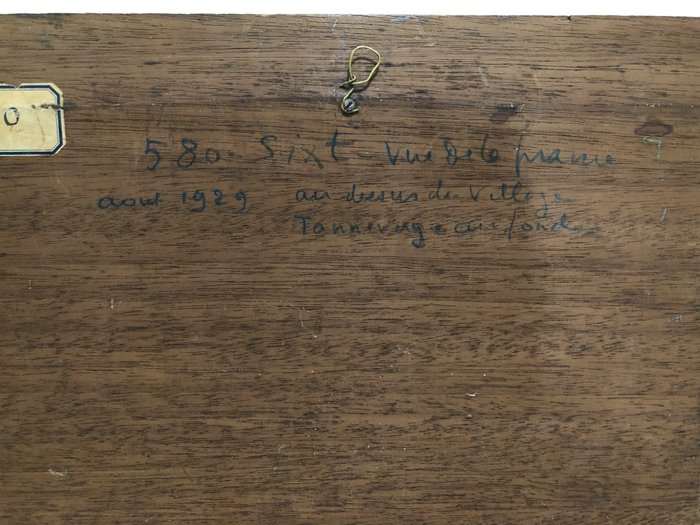 0
580 - Sixt - Vue de la prairie
aout 1929 au dessus du village
Tanneverge au fond